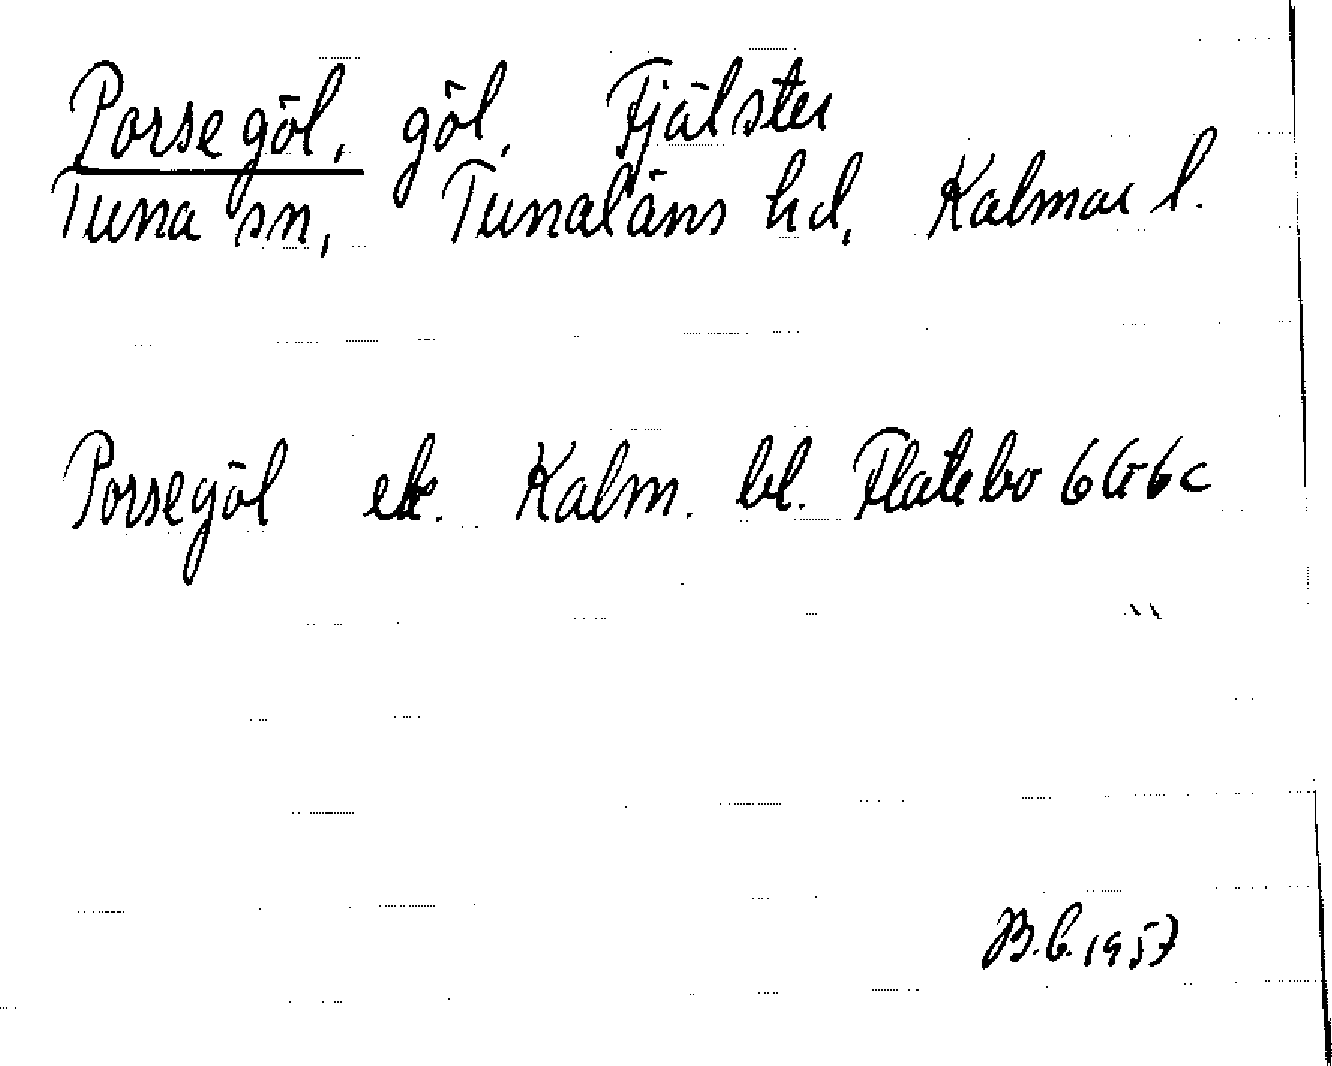 Porsegöl, göl, Fjälster
Tuna sn, Tunaläns hd, Kalmar l.
Porsegöl ek. Kalm. bl. Flatebo 6G6c
B.G. 1957